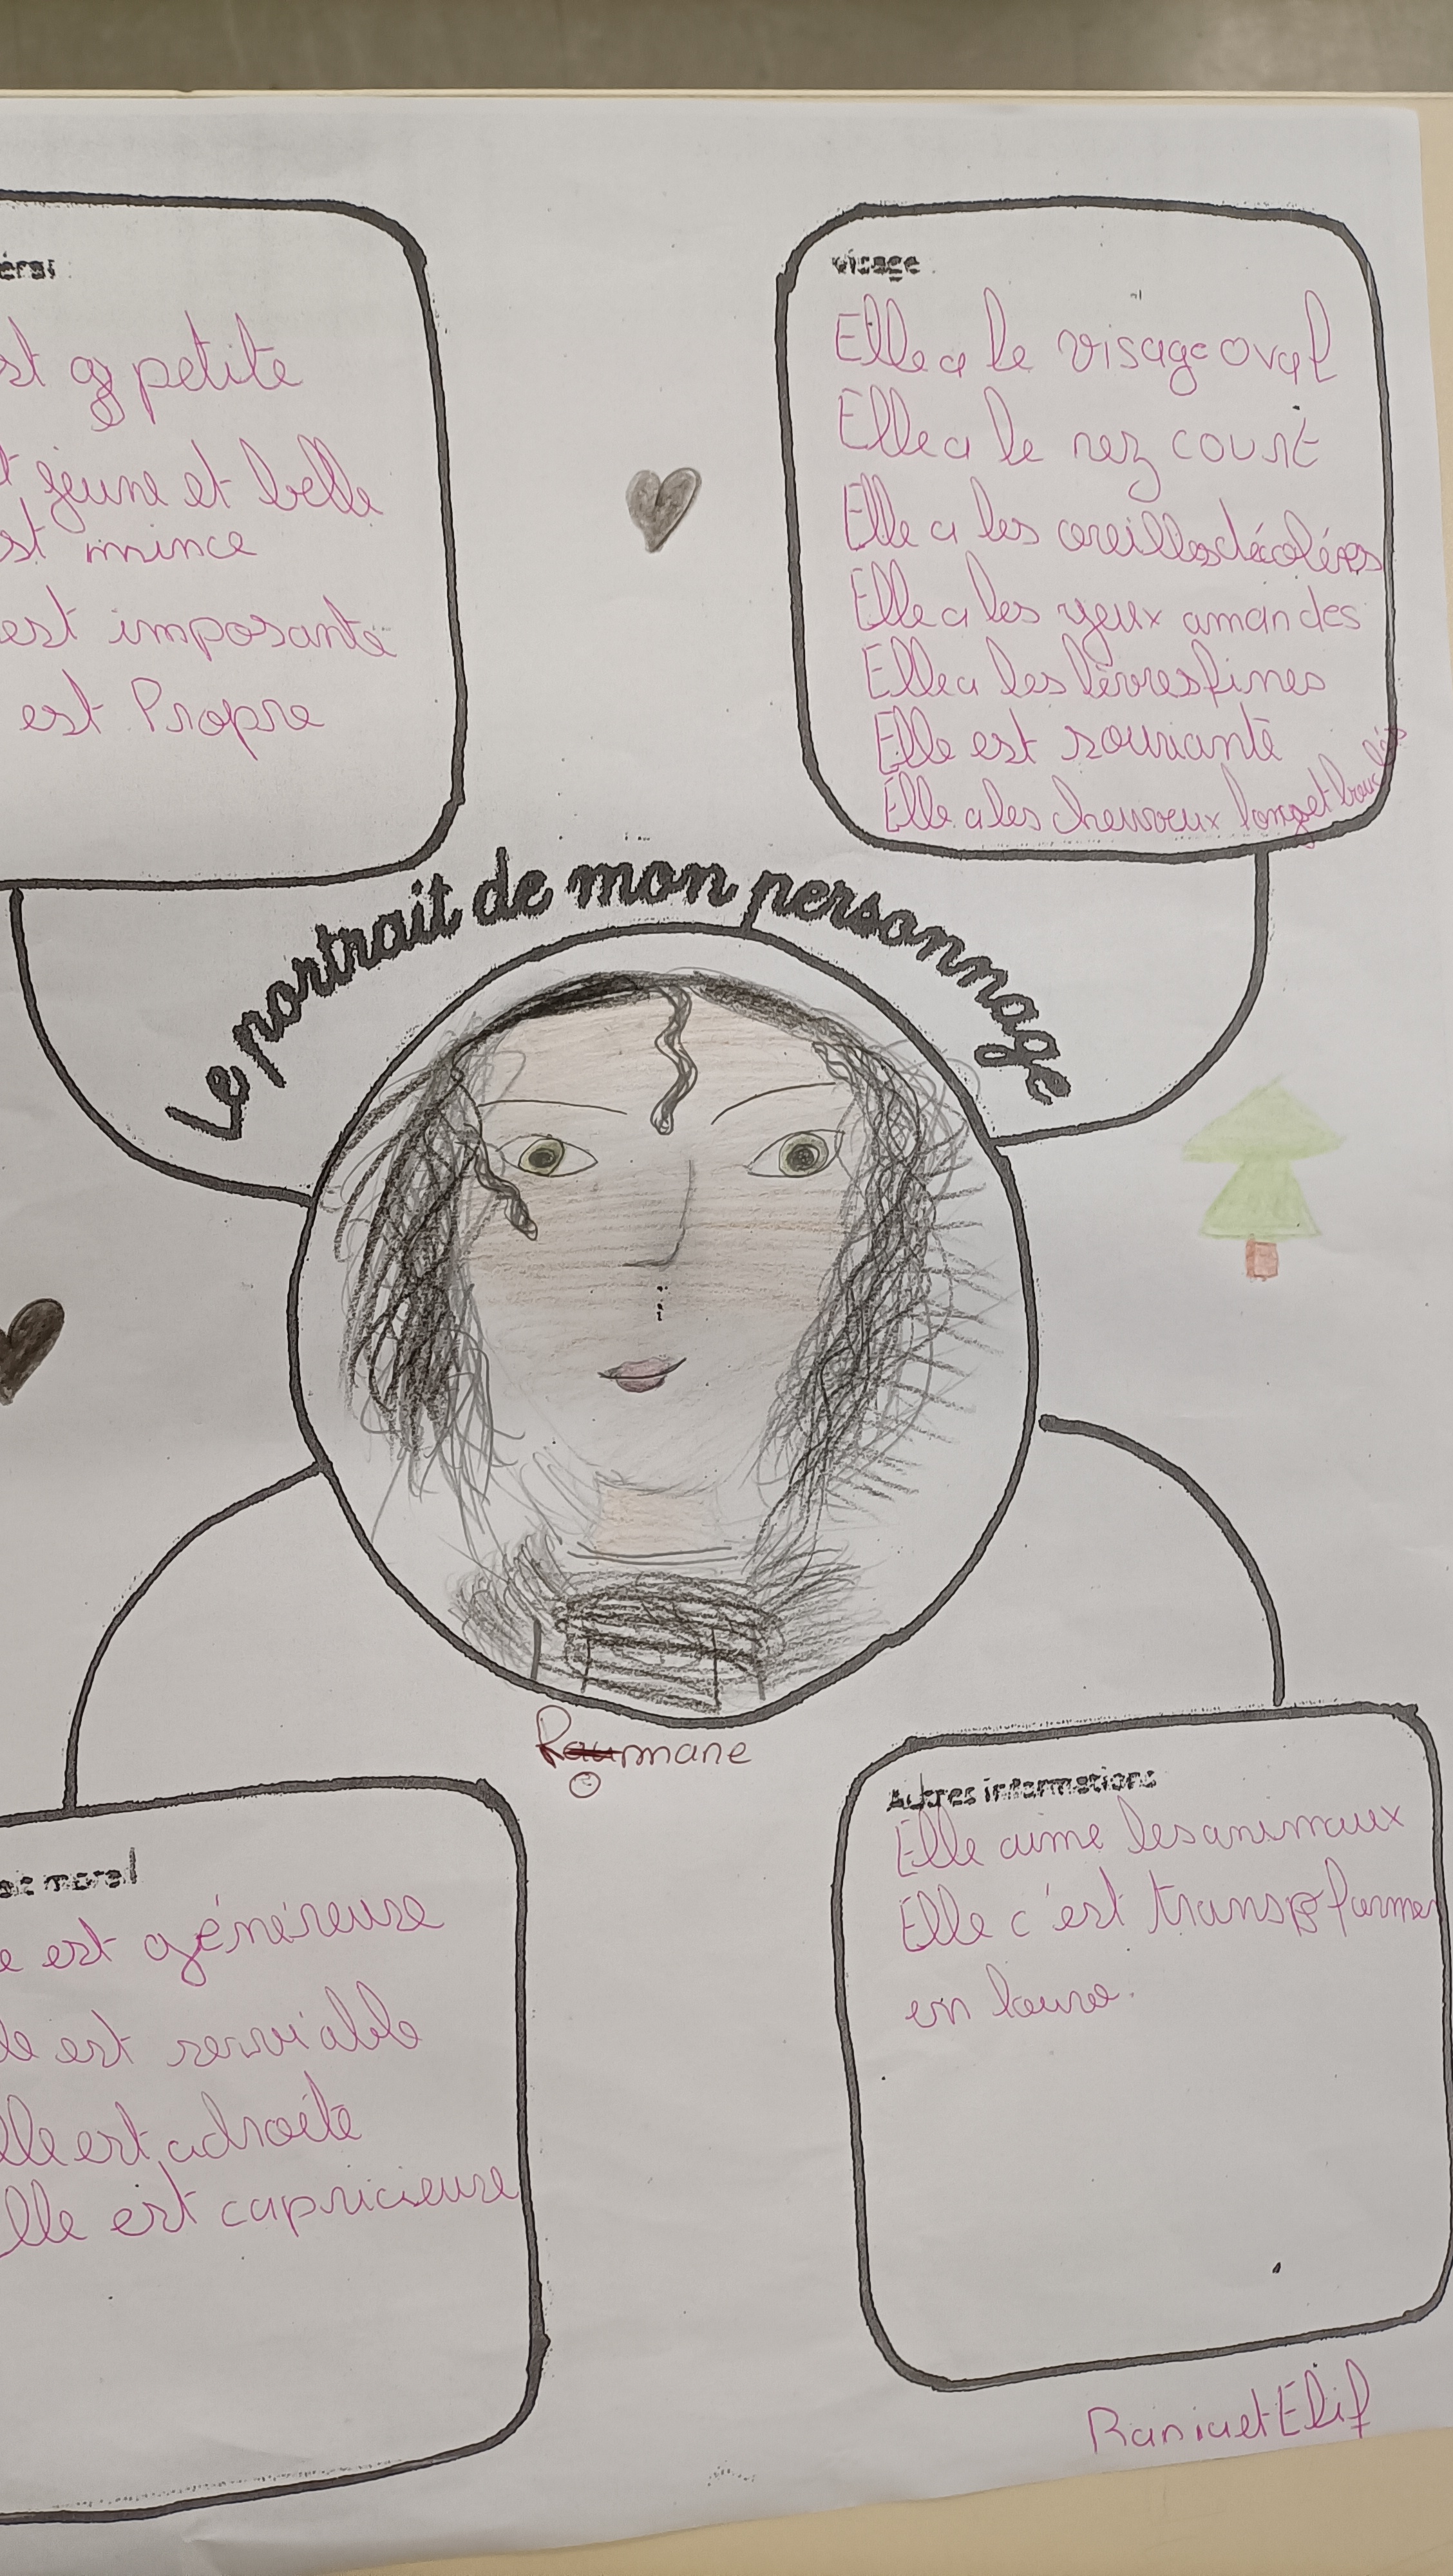 petite
jeune et belle
est mince
est imposante
est Propre
visage
Elle a le visage oval
Elle a le nez court
Elle a les oreilles décolérés
Elle a les yeux amandes
Elle a les lèvres fines
Elle est souriante
Elle a les cheuveux long et bouclés
Le portrait de mon personnage
moral
est généreuse
est serviable
est adroite
Elle est capricieuse
Autres informations
Elle aime les animaux
Elle c'est transformer
en louve.
Rania et Elif